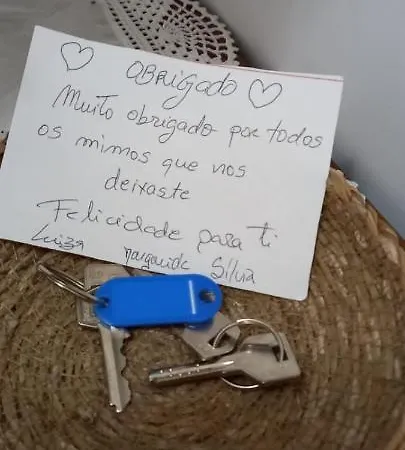 OBRIGADO
Muito obrigado por todos
os mimos que nos
deixaste
Felicidade para ti
Luiza margarida Silvia